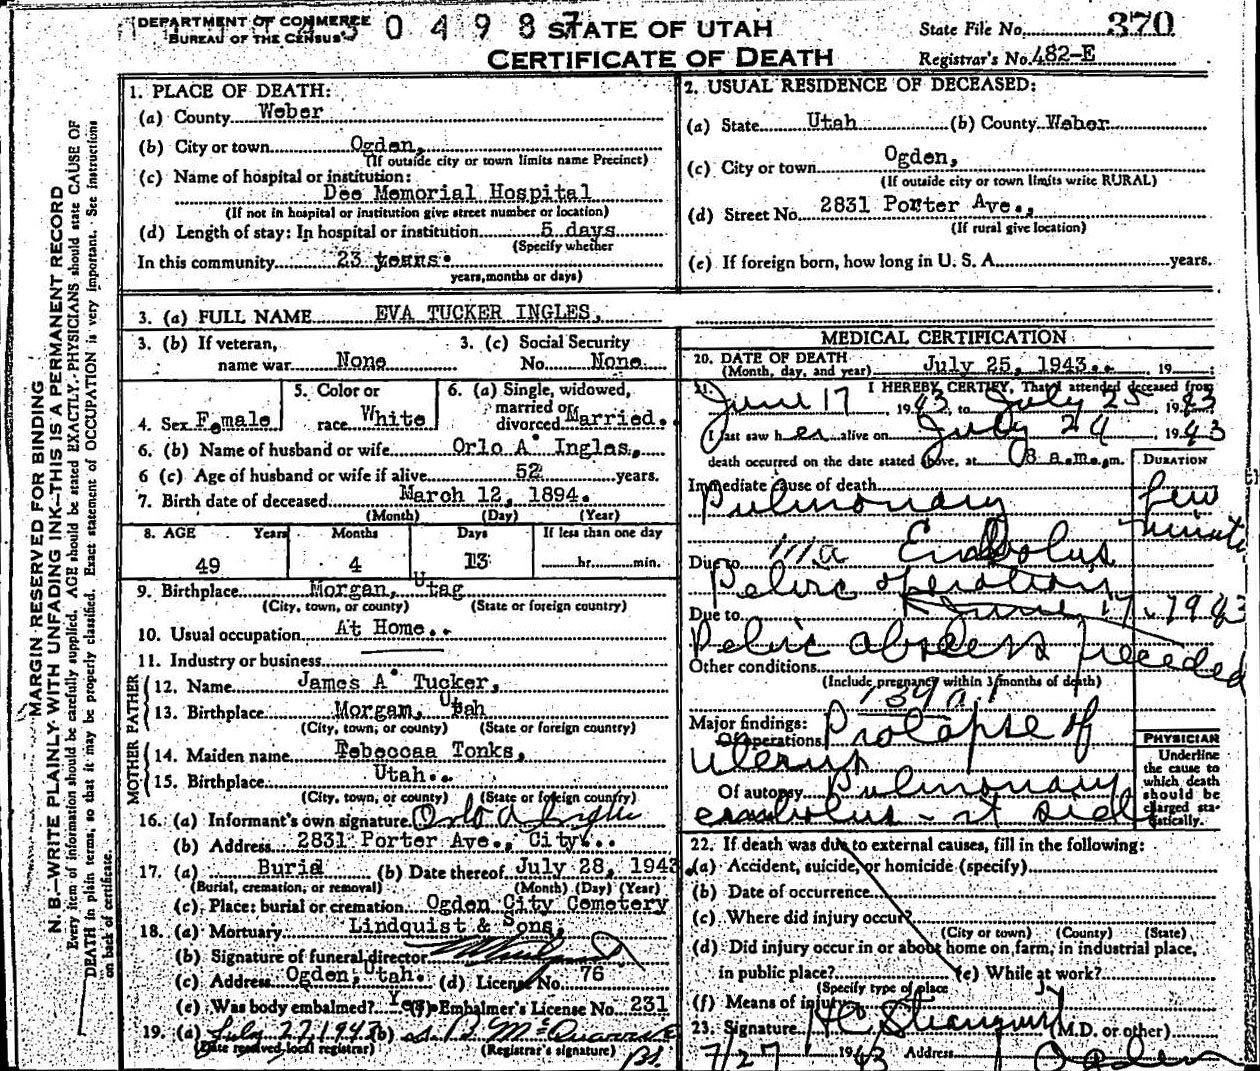 DEPARTMENT OF COMMERCE
BUREAU OF THE CENSUS
0 4 9 8 7
STATE OF UTAH
CERTIFICATE OF DEATH
State File No. 370
Registrar's No. 482-E
MARGIN RESERVED FOR BINDING
N. B.—WRITE PLAINLY WITH UNFADING INK—THIS IS A PERMANENT RECORD
Every item of information should be carefully supplied. AGE should be stated EXACTLY. PHYSICIANS should state CAUSE OF
DEATH in plain terms, so that it may be properly classified. Exact statement of OCCUPATION is very important. See instructions
on back of certificate.
1. PLACE OF DEATH:
(a) County Weber
(b) City or town Ogden,
(If outside city or town limits name Precinct)
(c) Name of hospital or institution:
Dee Memorial Hospital
(If not in hospital or institution give street number or location)
(d) Length of stay: In hospital or institution 5 days
(Specify whether
In this community 23 years.
years, months or days)
2. USUAL RESIDENCE OF DECEASED:
(a) State Utah (b) County Weber
(c) City or town Ogden,
(If outside city or town limits write RURAL)
(d) Street No. 2831 Porter Ave.,
(If rural give location)
(e) If foreign born, how long in U. S. A. years.
3. (a) FULL NAME EVA TUCKER INGLES,
3. (b) If veteran, name war None
3. (c) Social Security No. None
4. Sex Female
5. Color or race White
6. (a) Single, widowed, married or divorced Married.
6. (b) Name of husband or wife Orlo A. Ingles,
6 (c) Age of husband or wife if alive 52 years.
7. Birth date of deceased March 12, 1894.
(Month) (Day) (Year)
8. AGE Years Months Days If less than one day
49 4 13 hr. min.
9. Birthplace Morgan, Utag
(City, town, or county) (State or foreign country)
10. Usual occupation At Home..
11. Industry or business
FATHER
12. Name James A. Tucker,
13. Birthplace Morgan, Utah
(City, town, or county) (State or foreign country)
MOTHER
14. Maiden name Rebeccaa Tonks,
15. Birthplace Utah..
(City, town, or county) (State or foreign country)
16. (a) Informant's own signature Orlo A Ingles
(b) Address 2831 Porter Ave., City..
17. (a) Burial (b) Date thereof July 28, 1943
(Burial, cremation, or removal) (Month) (Day) (Year)
(c) Place: burial or cremation Ogden City Cemetery
18. (a) Mortuary Lindquist & Sons,
(b) Signature of funeral director
(c) Address Ogden, Utah. (d) License No. 76
(e) Was body embalmed? Yes (f) Embalmer's License No. 231
19. (a) July 27, 1943 (b)
(Date received local registrar) (Registrar's signature)
MEDICAL CERTIFICATION
20. DATE OF DEATH July 25, 1943.. 19
(Month, day, and year)
21. I HEREBY CERTIFY, That I attended deceased from
June 17, 1943, to July 25, 1943
I last saw her alive on July 24 1943
death occurred on the date stated above, at 8 a.m. m.
DURATION
Immediate cause of death
Pulmonary few
Embolus minutes
Due to
Pelvic operation
Due to June 17, 1943
Pelvic abscess preceded
Other conditions
(Include pregnancy within 3 months of death)
Major findings:
Of operations Prolapse of
Uterus
Of autopsy Pulmonary
embolus
PHYSICIAN
Underline
the cause to
which death
should be
charged sta-
tistically.
22. If death was due to external causes, fill in the following:
(a) Accident, suicide, or homicide (specify)
(b) Date of occurrence
(c) Where did injury occur?
(City or town) (County) (State)
(d) Did injury occur in or about home on farm, in industrial place,
in public place? (e) While at work?
(Specify type of place
(f) Means of injury
23. Signature (M.D. or other)
7/27 1943 Address Ogden